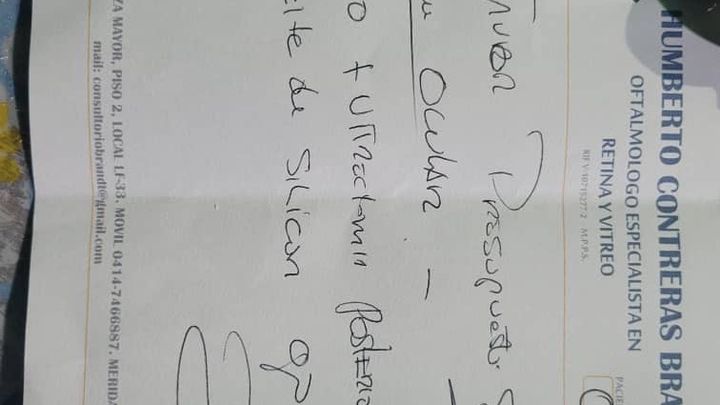 HUMBERTO CONTRERAS BRA
OFTALMOLOGO ESPECIALISTA EN
RETINA Y VITREO
M.P.P.S.
PACIE
Presupuesto
OCULAR —
O + VITRECTOMIA POSTERIO
de SILICON
ZA MAYOR, PISO 2, LOCAL LF-33. MOVIL 0414-7466887. MERIDA
mail: consultoriobrandt@gmail.com